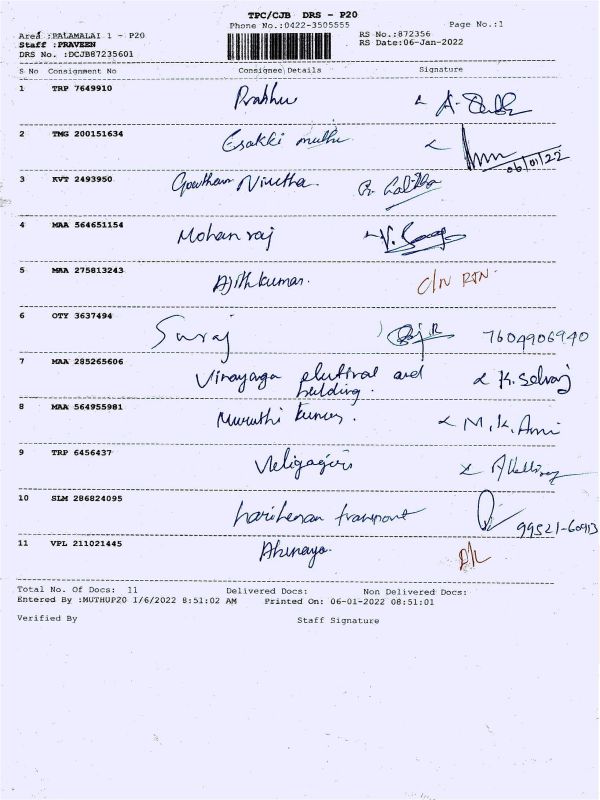 TPC/CJB DRS - P20
Phone No.:0422-3505555 Page No.:1
Area :PALAMALAI 1 - P20 RS No.:872356
Staff :PRAVEEN RS Date:06-Jan-2022
DRS No. :DCJB87235601
S No Consignment No Consignee Details Signature
1 TRP 7649910 Prabhu
2 TMG 200151634 Esakki muthu 06/01/22
3 KVT 2493950 Gowtham Nivetha
4 MAA 564651154 Mohan raj
5 MAA 275813243 Ajithkumar. C/N RTN.
6 OTY 3637494 Suraj 7604906940
7 MAA 285265606 Vinayaga and K. Selvaj
building.
8 MAA 564955981 M. K. Ami
9 TRP 6456437
10 SLM 286824095 99521-60913
11 VPL 211021445 D/L
Total No. Of Docs: 11 Delivered Docs: Non Delivered Docs:
Entered By :MUTHUP20 1/6/2022 8:51:02 AM Printed On: 06-01-2022 08:51:01
Verified By Staff Signature